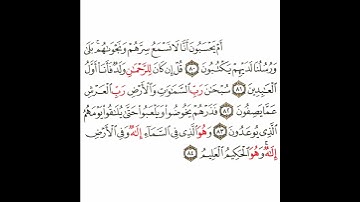 أَمْ يَحْسَبُونَ أَنَّا لَا نَسْمَعُ سِرَّهُمْ وَنَجْوَىٰهُم ۚ بَلَىٰ
وَرُسُلُنَا لَدَيْهِمْ يَكْتُبُونَ ٨٠ قُلْ إِن كَانَ لِلرَّحْمَٰنِ وَلَدٌ فَأَنَا۠ أَوَّلُ
الْعَٰبِدِينَ ٨١ سُبْحَٰنَ رَبِّ السَّمَٰوَٰتِ وَالْأَرْضِ رَبِّ الْعَرْشِ
عَمَّا يَصِفُونَ ٨٢ فَذَرْهُمْ يَخُوضُوا۟ وَيَلْعَبُوا۟ حَتَّىٰ يُلَٰقُوا۟ يَوْمَهُمُ
الَّذِي يُوعَدُونَ ٨٣ وَهُوَ الَّذِي فِي السَّمَآءِ إِلَٰهٌ وَفِي الْأَرْضِ
إِلَٰهٌ ۚ وَهُوَ الْحَكِيمُ الْعَلِيمُ ٨٤